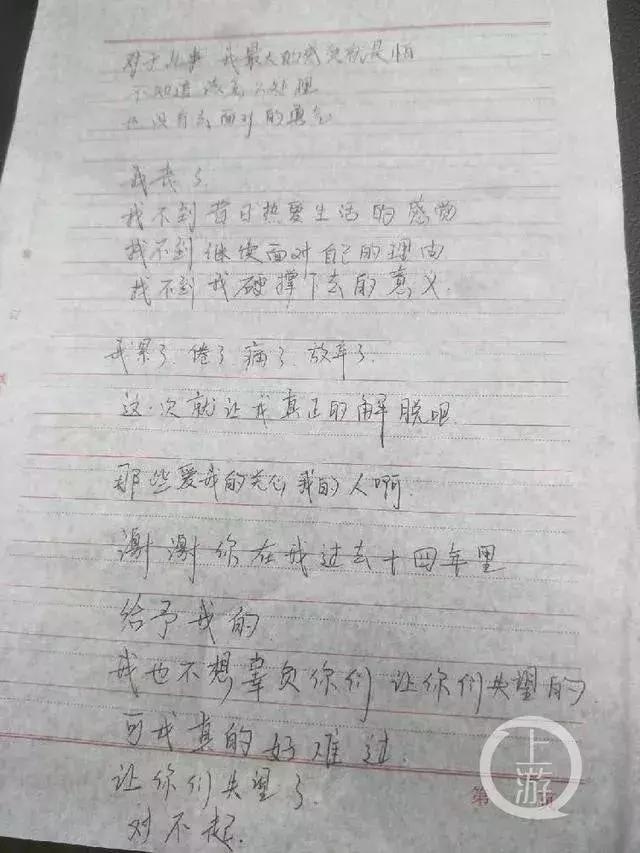 对于此事 我最大的感觉就是怕
不知道该怎么处理
也没有去面对的勇气
我丧了
找不到昔日热爱生活的感觉
找不到继续面对自己的理由
找不到我硬撑下去的意义.
我累了.倦了.痛了.放弃了.
这一次就让我真正的解脱吧.
那些爱我的关心我的人啊.
谢谢你在我过去十四年里
给予我的
我也不想辜负你们 让你们失望的
可我真的好难过.
让你们失望了.
对不起.
第 页
上游